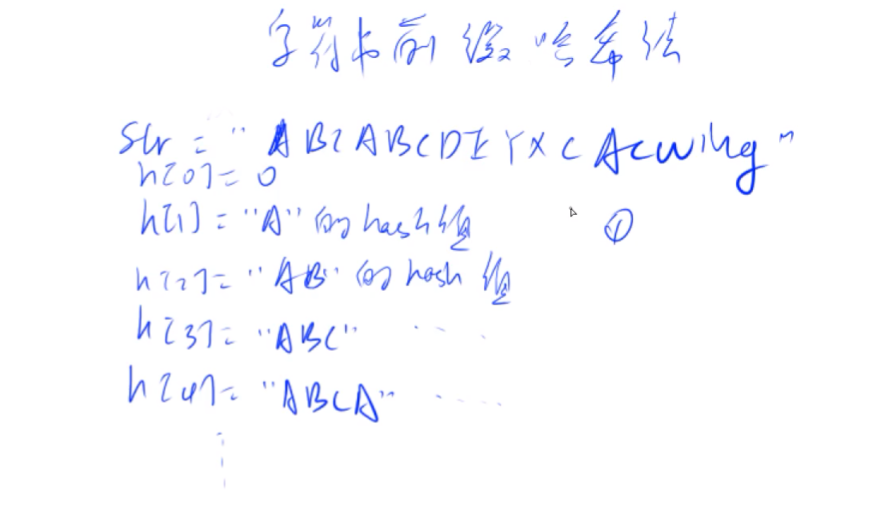 字符串前缀哈希法
Str = "ABCABCDEYXCAcwing"
h[0] = 0
h[1] = "A"的hash值
①
h[2] = "AB"的hash值
h[3] = "ABC" ....
h[4] = "ABCA" .....